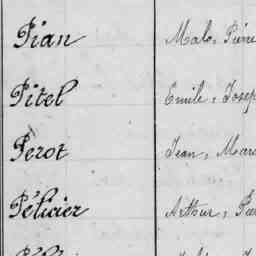 Pian Malo, Pierre
Pitel Emile, Josep
Perot Jean, Marc
Pélicier Arthur, Pa